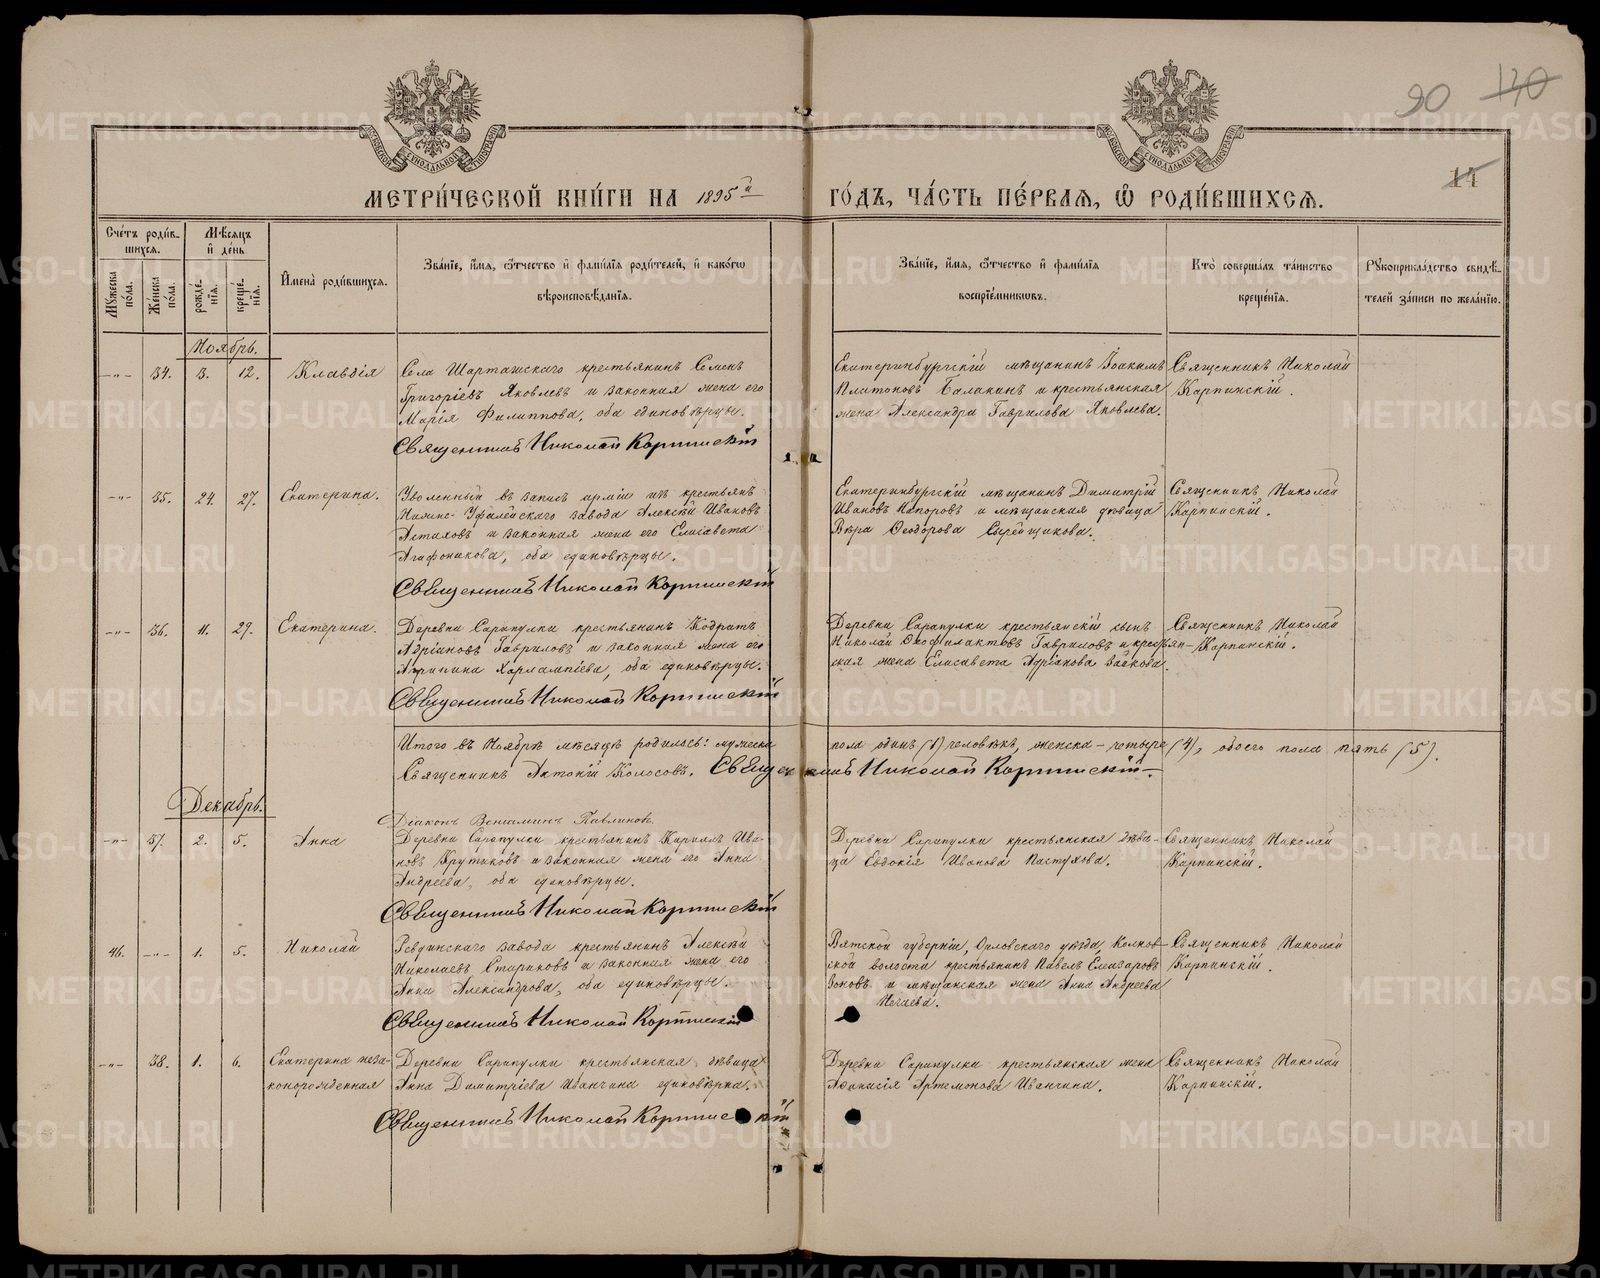 90 140
14
МЕТРИ́ЧЕСКОЙ КНИ́ГИ НА 1895й ГО́ДЪ, ЧА́СТЬ ПЕ́РВАЯ, Ѿ РОДИ́ВШИХСЯ.
Сче́тъ роди́в-
шихся.
Му́жеска по́ла.
Же́нска по́ла.
Мѣ́сяцъ и де́нь
рожде́нія.
креще́нія.
Имена̀ роди́вшихся.
Зва́ніе, и́мя, ѻ́тчество и фами́лія роди́телей, и како́гѡ
вѣроисповѣ́данія.
Зва́ніе, и́мя, ѻ́тчество и фами́лія
воспріе́мниковъ.
Кто̀ соверша́лъ та́инство
креще́нія.
Рꙋкоприкла́дство свидѣ́-
телей за́писи по жела́нію.
Ноябрь.
-„- 34. 3. 12. Клавдія
Села Шарташскаго крестьянинъ Семенъ
Григоріевъ Яковлевъ и законная жена его
Марія Филиппова, оба единовѣрцы.
Священникъ Николай Карпинскій
Екатеринбургскій мѣщанинъ Іоакимъ
Платоновъ Балакинъ и крестьянская
жена Александра Гаврилова Яковлева.
Священникъ Николай
Карпинскій.
-„- 35. 24. 27. Екатерина.
Уволенный въ запасъ арміи изъ крестьянъ
Нижне-Уфалейскаго завода Алексѣй Ивановъ
Астаховъ и законная жена его Елисавета
Агафоникова, оба единовѣрцы.
Священникъ Николай Карпинскій
Екатеринбургскій мѣщанинъ Димитрій
Ивановъ и мѣщанская дѣвица
Вѣра Ѳеодорова Сырейщикова.
Священникъ Николай
Карпинскій.
-„- 36. 11. 29. Екатерина.
Деревни Сарапулки крестьянинъ Кодратъ
Адріановъ Гавриловъ и законная жена его
Харлампіева, оба единовѣрцы.
Священникъ Николай Карпинскій
Деревни Сарапулки крестьянскій сынъ
Николай Ѳеофилактовъ Гавриловъ и крестьян-
ская жена Елисавета Адріанова Зайкова.
Священникъ Николай
Карпинскій.
Итого въ Ноябрѣ мѣсяцѣ родилось: мужеска пола одинъ (1) человѣкъ, женска - четыре (4), обоего пола пять (5).
Священникъ Антоній Колосовъ. Священникъ Николай Карпинскій.
Декабрь.
Діаконъ Веніаминъ Павлиновъ.
-„- 37. 2. 5. Анна
Деревни Сарапулки крестьянинъ Кириллъ Ива-
новъ Крутиковъ и законная жена его Анна
Андреева, оба единовѣрцы.
Священникъ Николай Карпинскій
Деревни Сарапулки крестьянская дѣви-
ца Евдокія Иванова Пастухова.
Священникъ Николай
Карпинскій.
46. -„- 1. 5. Николай
Ревдинскаго завода крестьянинъ Алексѣй
Николаевъ Стариковъ и законная жена его
Анна Александрова, оба единовѣрцы.
Священникъ Николай Карпинскій
Вятской губерніи, Орловскаго уѣзда
волости крестьянинъ Павелъ Елеазаровъ
Зоновъ и мѣщанская жена Анна Андреева
Нечаева.
Священникъ Николай
Карпинскій.
-„- 38. 1. 6. Екатерина неза-
коннорожденная
Деревни Сарапулки крестьянская дѣвица
Анна Димитріева Иванчина единовѣрка.
Священникъ Николай Карпинскій
Деревни Сарапулки крестьянская жена
Аѳанасія Артемонова Иванчина.
Священникъ Николай
Карпинскій.
METRIKI.GASO-URAL.RU